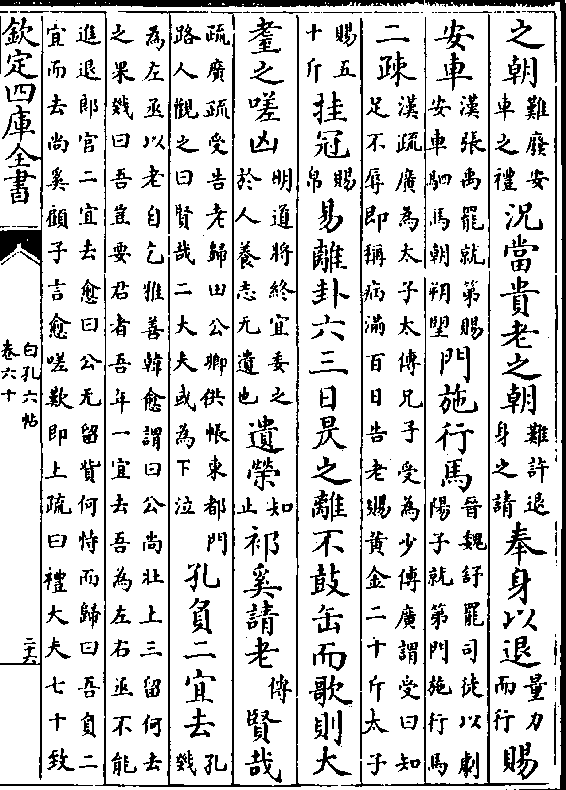 之朝難廢安車之禮況當貴老之朝難許退身之請奉身以退量力而行賜
安車漢張禹罷就第賜安車駟馬朝朔朢門施行馬晉魏舒罷司徒以劇陽子就第門施行馬
二疎漢疏廣為太子太傅兄子受為少傅廣謂受曰知足不辱即稱病滿百日告老賜黃金二十斤太子
賜五十斤挂冠賜帛易離卦六三日昃之離不鼓缶而歌則大
耋之嗟凶明道將終宜委之於人養志无遺也遺榮知止祁奚請老傳賢哉
疏廣疏受告老歸田公卿供帳東都門路人觀之曰賢哉二大夫或為下泣孔負二宜去孔戣
為左丞以老自乞雅善韓愈謂曰公尚壯上三留何去
之果戣曰吾豈要君者吾年一宜去吾為左右丞不能
進退郎官二宜去愈曰公无留貲何恃而歸曰吾負二
宜而去尚奚顧子言愈嗟歎即上疏曰禮大夫七十致
欽定四庫全書
白孔六帖
卷六十
二六